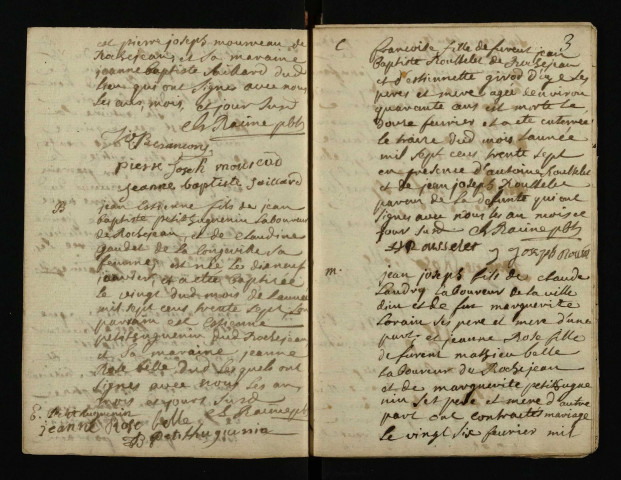 est pierre joseph mourveau de
Rochejean et sa maraine
jeanne baptiste Saillard dud
lieu qui ont signes avec nous
les ans, mois, et jour Susd
Cl Racine pbtr
pierre Joseph mouseau
jeanne baptiste Saillard
B
jean Estienne fils de jean
baptiste petithuguenin Laboureur
de Rochejean, et de Claudine
gaudet de la longeville sa
femme, est né le dix neuf
janvier, et a été baptisé
le vingt dud mois de l'année
mil sept cens trente sept, Son
parrain est Estienne
petithuguenin dud Rochejean
et sa maraine jeanne
Rose belle dud lesquels ont
signes avec nous les an
mois et jours Susd
E. petithuguenin Cl Racine pbtr
jeanne Rose belle
petithuguenin
3
C
francoise fille de furent jean
baptiste Rousselet de Rochejean
et d'estiennette girod d'ize ses
peres et mere agée denviron
quarante ans est morte le
douze fevrier et a été enterrée
le traize dud mois l'année
mil sept cens trente sept
en présence d'antoine Rousselet
et de jean joseph Rousselet
parens de la defunte qui ont
signes avec nous les an mois et
jour susd Cl Racine pbtr
A Rousselet
J joseph Rousselet
m.
jean joseph fils de claude
Landry Laboureur de la ville
dieu et de fut marguerite
Lorain ses pere et mere d'une
part, et jeanne Rose fille
de furent mathieu belle
laboureur du Rochejean
et de marguerite petithugue
nin ses pere et mere d'autre
part ont contractés mariage
le vingt six fevrier mil